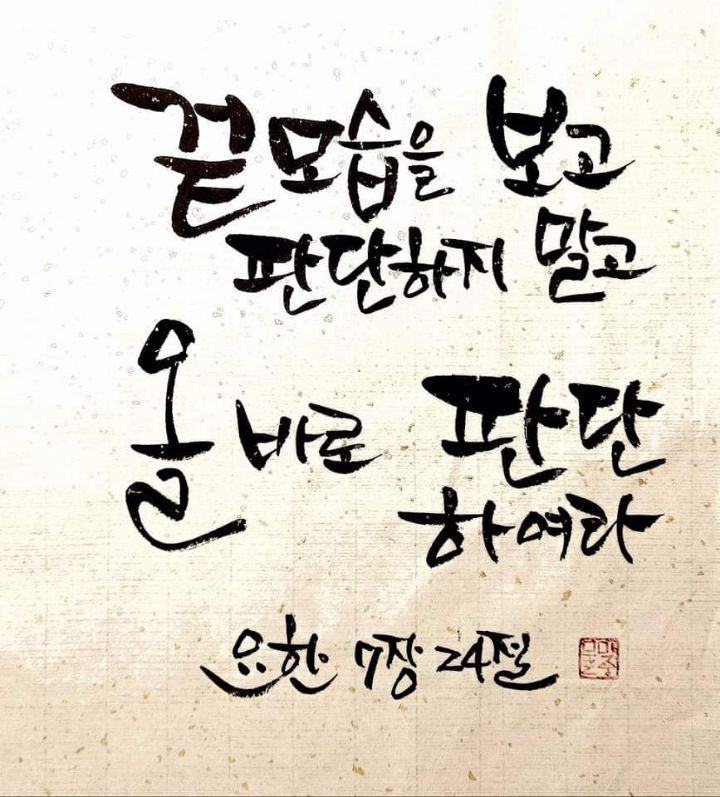 겉모습을 보고
판단하지 말고
올바로 판단
하여라
요한 7장 24절